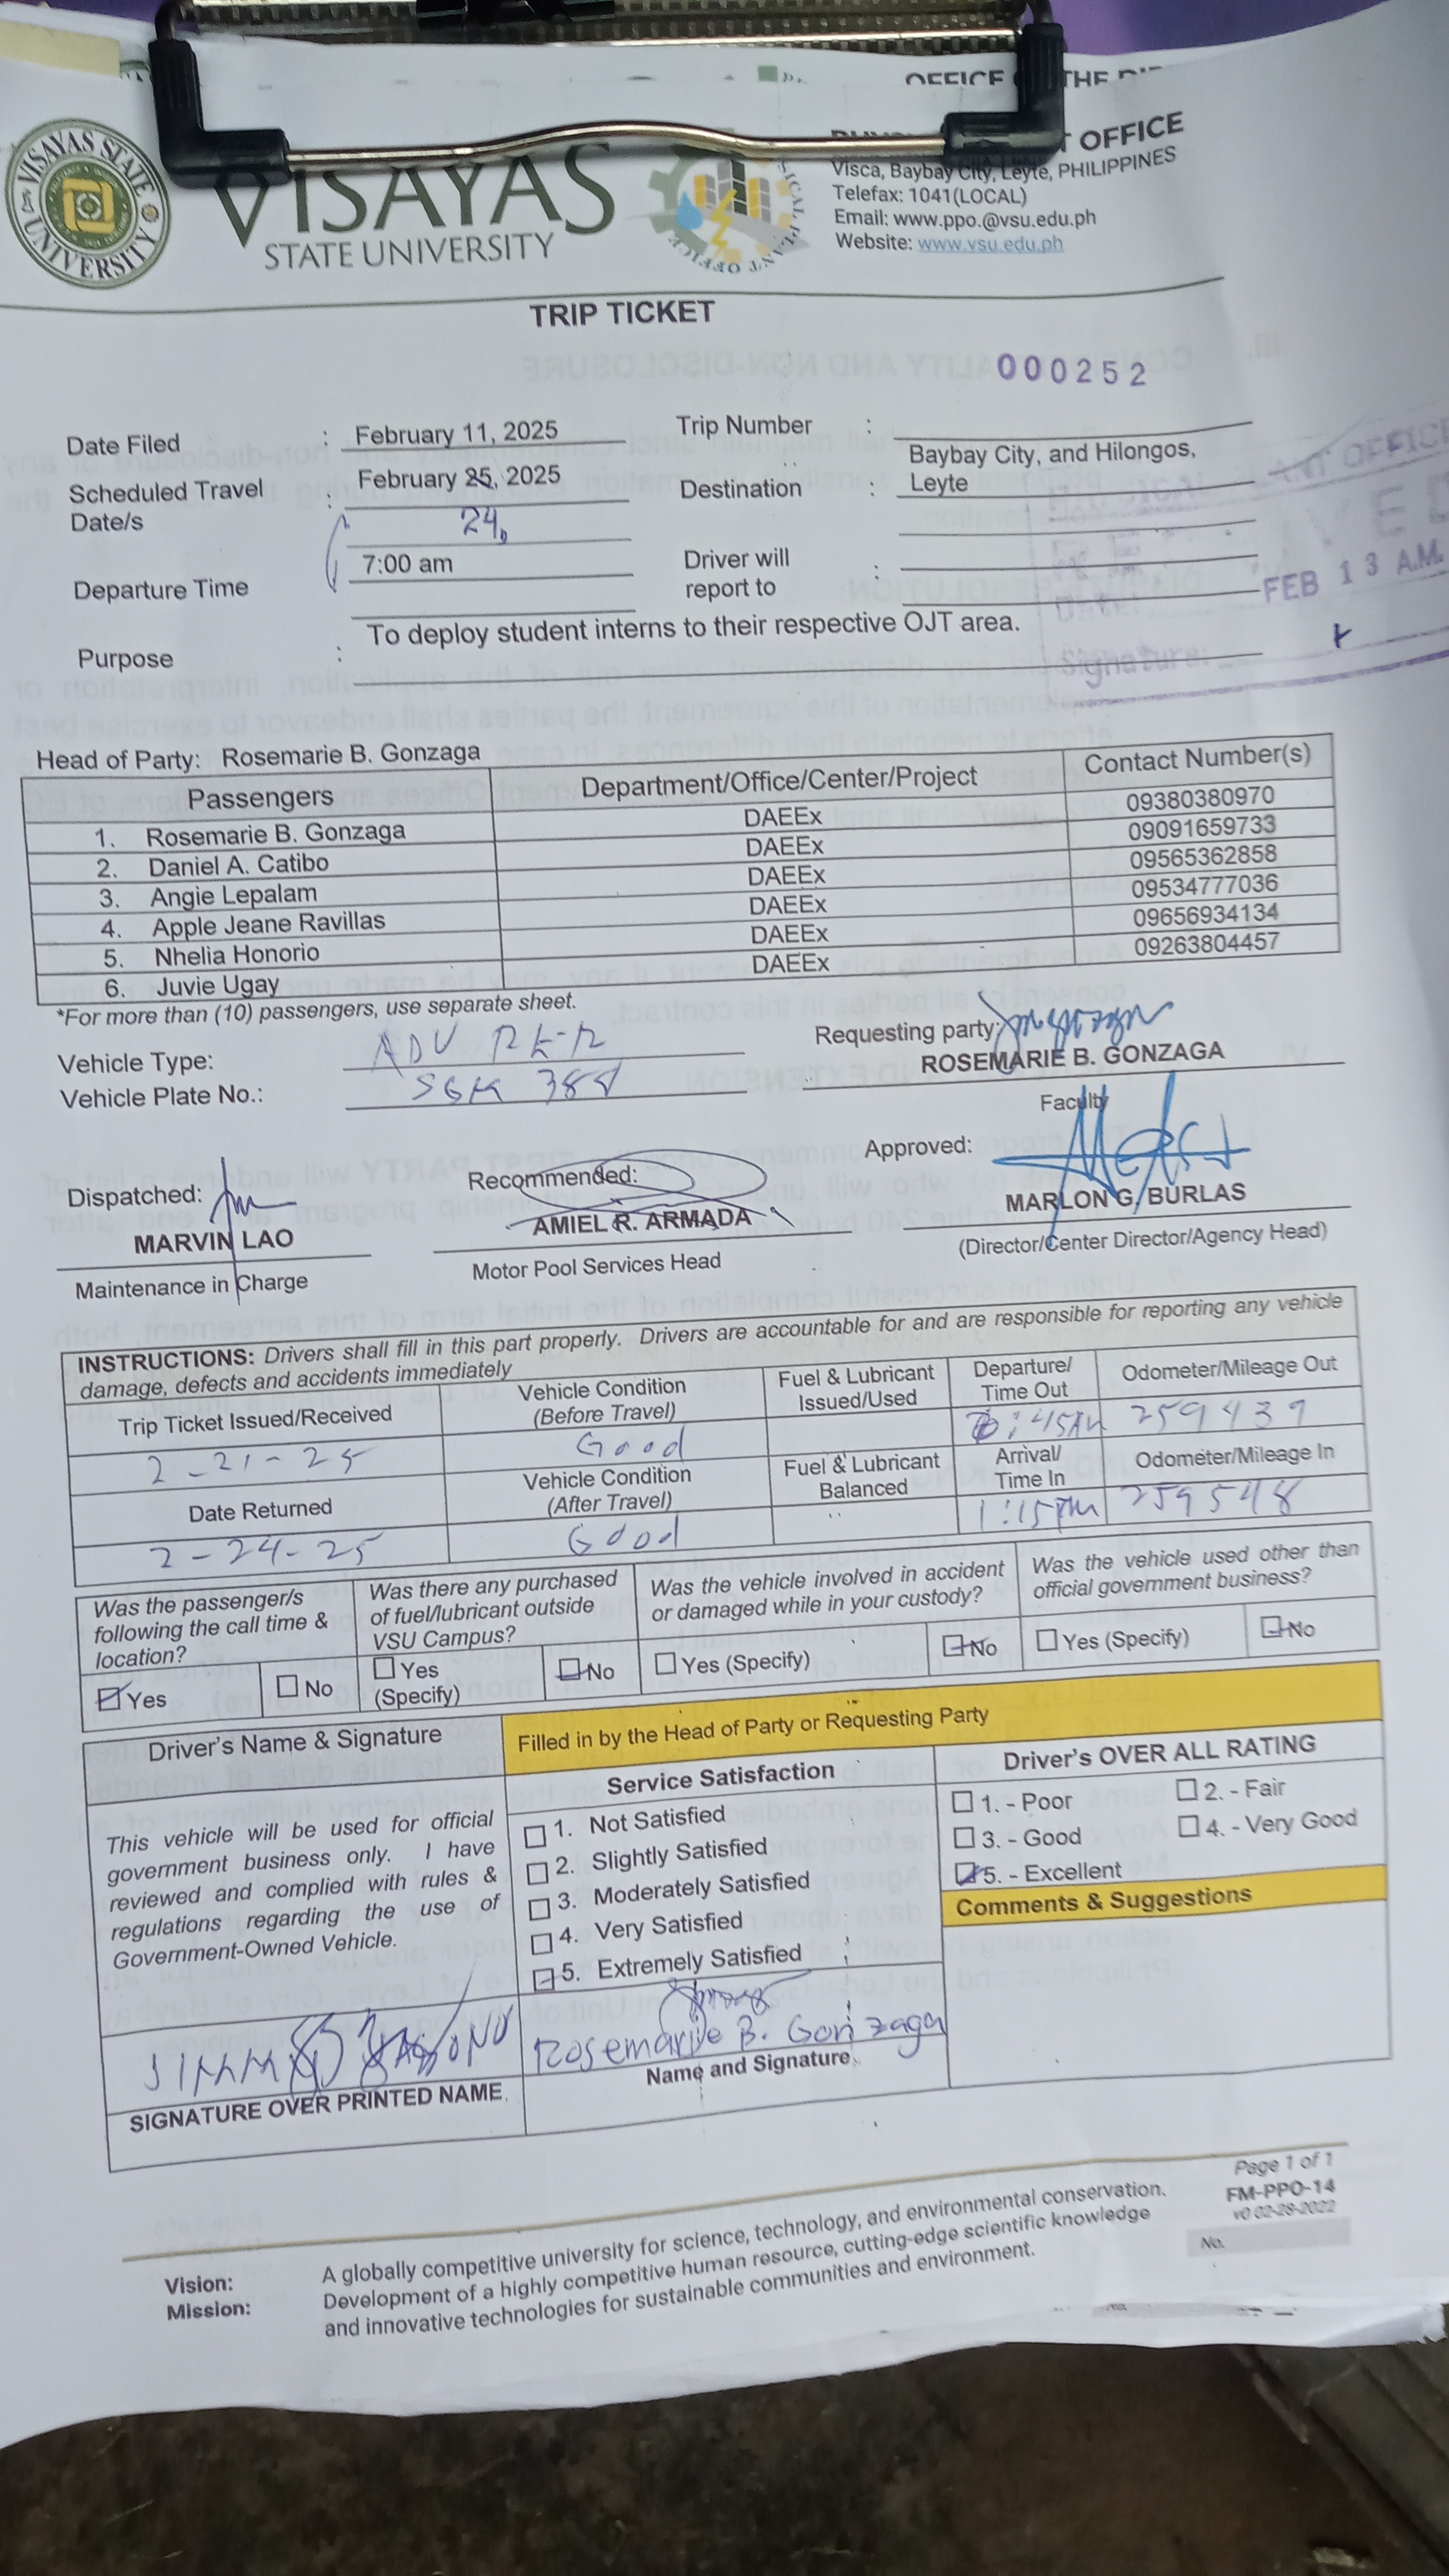 VISAYAS STATE UNIVERSITY
VISAYAS
STATE UNIVERSITY
OFFICE
Visca, Baybay City, Leyte, PHILIPPINES
Telefax: 1041(LOCAL)
Email: www.ppo.@vsu.edu.ph
Website: www.vsu.edu.ph
TRIP TICKET
000252
Date Filed : February 11, 2025
Trip Number :
Scheduled Travel Date/s : February 25, 2025
24,
Destination : Baybay City, and Hilongos, Leyte
Departure Time 7:00 am
Driver will report to :
FEB 13 A.M.
Purpose : To deploy student interns to their respective OJT area.
Signature:
Head of Party: Rosemarie B. Gonzaga
Passengers Department/Office/Center/Project Contact Number(s)
1. Rosemarie B. Gonzaga DAEEx 09380380970
2. Daniel A. Catibo DAEEx 09091659733
3. Angie Lepalam DAEEx 09565362858
4. Apple Jeane Ravillas DAEEx 09534777036
5. Nhelia Honorio DAEEx 09656934134
6. Juvie Ugay DAEEx 09263804457
*For more than (10) passengers, use separate sheet.
Vehicle Type: ADV
Vehicle Plate No.:
Requesting party:
ROSEMARIE B. GONZAGA
Faculty
Dispatched:
MARVIN LAO
Maintenance in Charge
Recommended:
AMIEL R. ARMADA
Motor Pool Services Head
Approved:
MARLON G. BURLAS
(Director/Center Director/Agency Head)
INSTRUCTIONS: Drivers shall fill in this part properly. Drivers are accountable for and are responsible for reporting any vehicle
damage, defects and accidents immediately
Trip Ticket Issued/Received
2-21-25
Vehicle Condition (Before Travel)
Good
Fuel & Lubricant Issued/Used
Departure/ Time Out
:45AM
Odometer/Mileage Out
259439
Date Returned
2-24-25
Vehicle Condition (After Travel)
Good
Fuel & Lubricant Balanced
Arrival/ Time In
1:15PM
Odometer/Mileage In
259548
Was the passenger/s
following the call time &
location?
Yes No
Was there any purchased
of fuel/lubricant outside
VSU Campus?
Yes (Specify) No
Was the vehicle involved in accident
or damaged while in your custody?
Yes (Specify) No
Was the vehicle used other than
official government business?
Yes (Specify) No
Driver's Name & Signature
Filled in by the Head of Party or Requesting Party
This vehicle will be used for official
government business only. I have
reviewed and complied with rules &
regulations regarding the use of
Government-Owned Vehicle.
Service Satisfaction
1. Not Satisfied
2. Slightly Satisfied
3. Moderately Satisfied
4. Very Satisfied
5. Extremely Satisfied
Driver's OVER ALL RATING
1. - Poor 2. - Fair
3. - Good 4. - Very Good
5. - Excellent
Comments & Suggestions
SIGNATURE OVER PRINTED NAME
Rosemarie B. Gonzaga
Name and Signature
Page 1 of 1
FM-PPO-14
v0 02-28-2022
No.
Vision: A globally competitive university for science, technology, and environmental conservation.
Mission: Development of a highly competitive human resource, cutting-edge scientific knowledge
and innovative technologies for sustainable communities and environment.